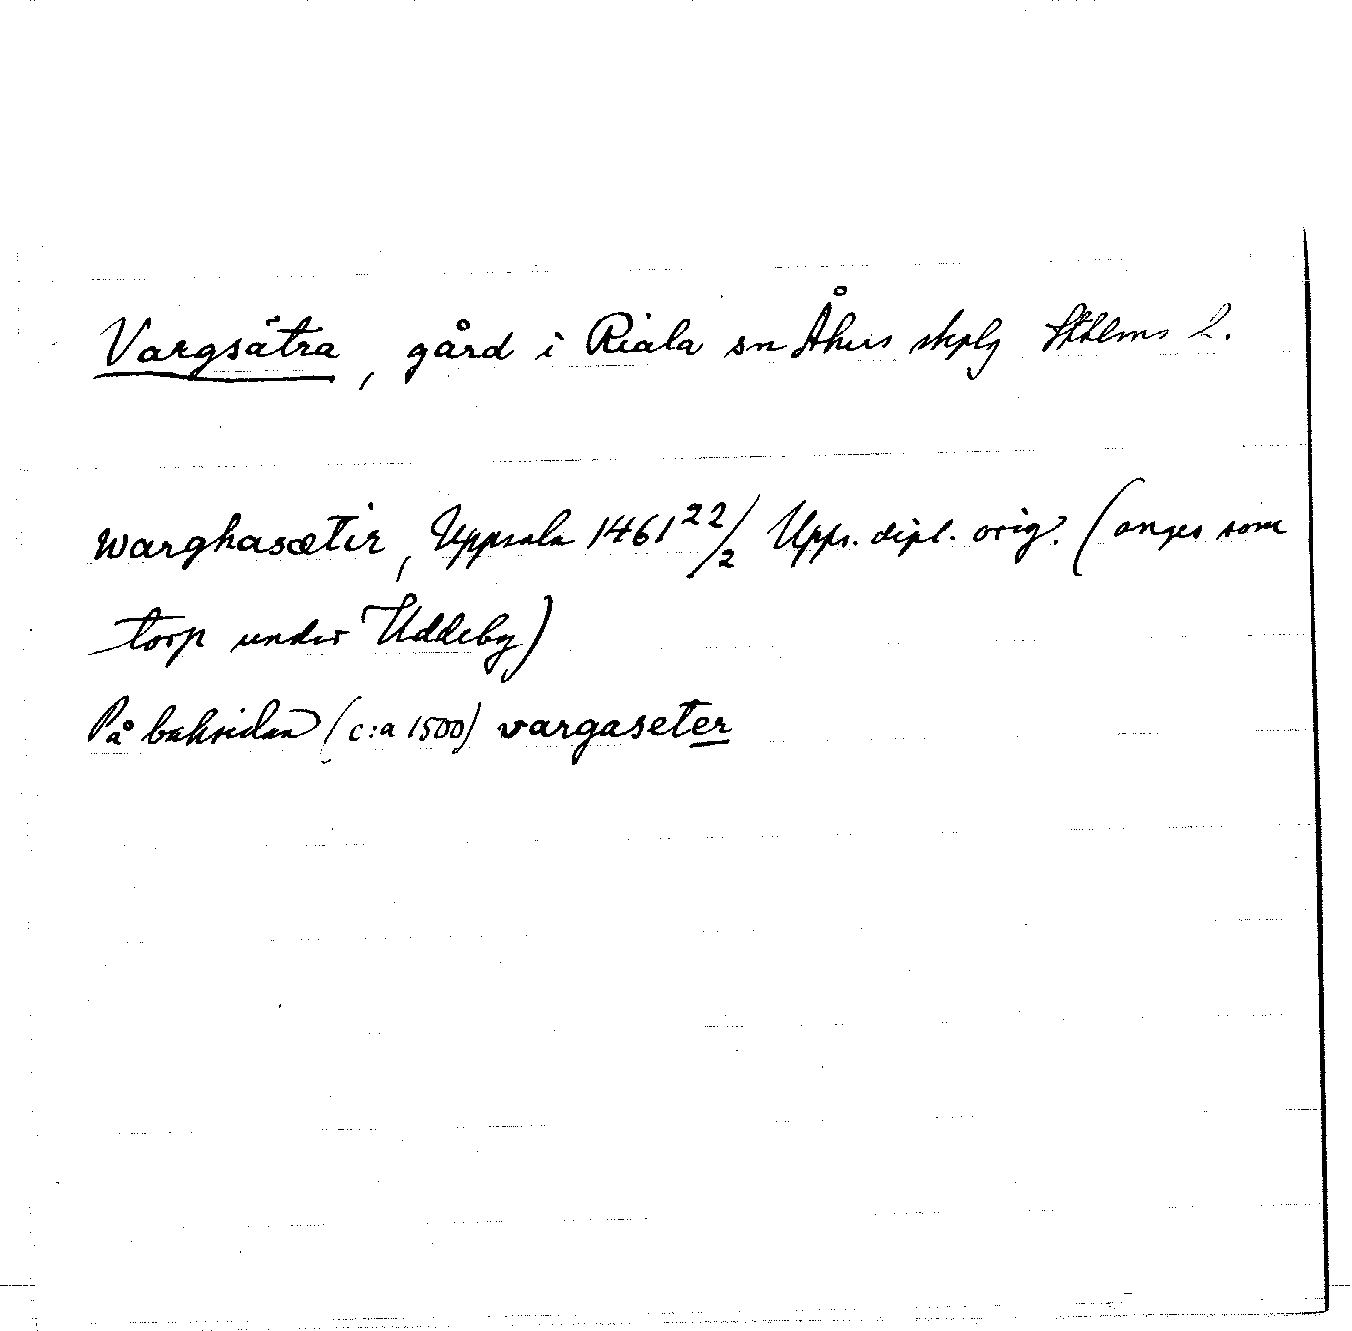 Vargsätra, gård i Riala sn Åkers skplg Sthlms l.
warghasætir, Uppsala 1461 22/2 Upps. dipl. orig. (anges som
torp under Uddeby)
På baksidan (c:a 1500) vargaseter